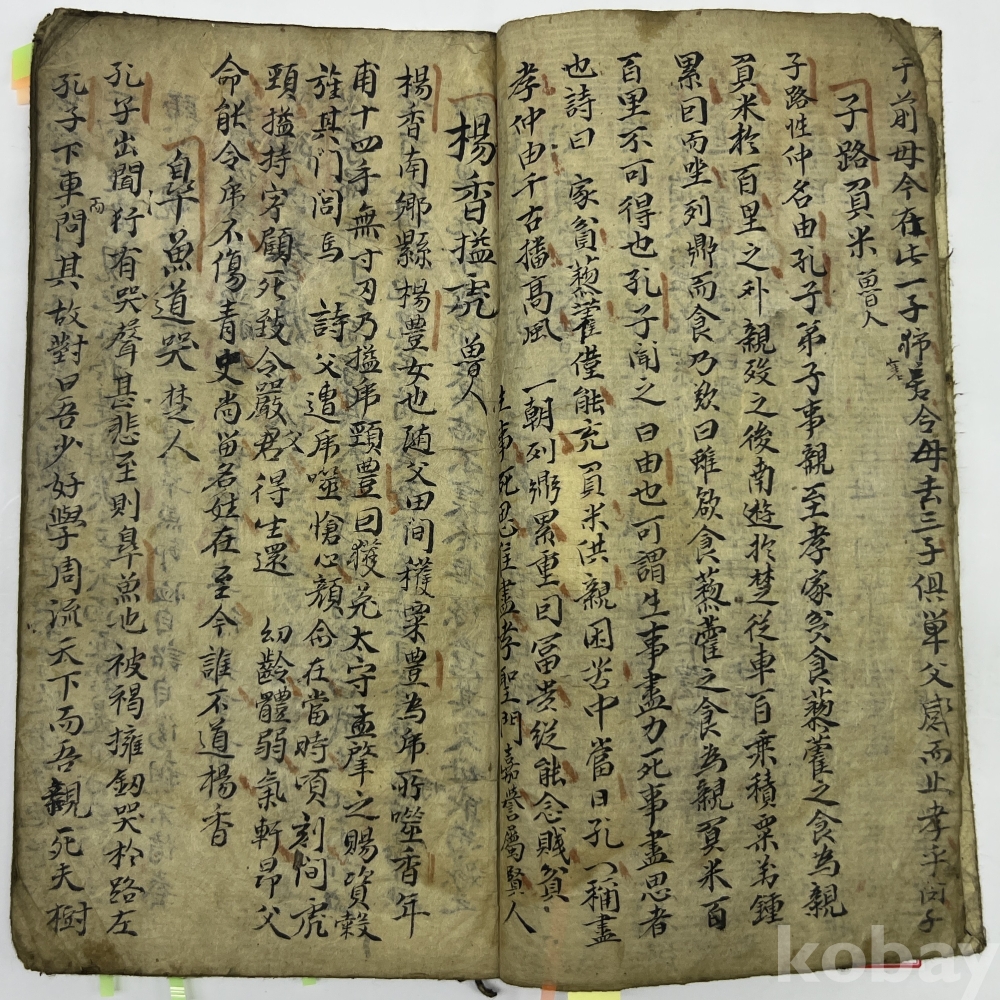 于前母今在此一子 若令母去三子俱單父感而止孝乎闵子
子路負米 曽人
子路性仲名由孔子弟子事親至孝家貧食藜藿之食為親
負米於百里之外親殁之後南遊於楚從車百乘積粟万鍾
累曰而坐列鼎而食乃欢曰雖欲食藜藿之食為親負米百
百里不可得也孔子聞之曰由也可謂生事盡力死事盡思者
也詩曰 家貧藜藿僅能充負米洪親困苦中當日孔门稱盡
孝仲由千古播高風 一朝列鼎累重曰富貴從能念賎貧
生事死思往盡孝聖門嘉譽屬賢人
楊香搤虎 曽人
楊香南鄉縣楊豊女也随父田间穫粟豊為虎所噬香年
甫十四手無寸刃乃搤虎頸豊曰獲免太守孟肇之賜資穀
旌其门闾焉 詩父遭虎噬愴心顔命在當時頃刻间虎
頸搤持字顧死致令嚴君得生還 幻齡體弱氣軒昂父
父
命能令虎不傷青史尚畄名姓在至今誰不道楊香
皋魚道哭 楚人
孔子出聞行有哭聲甚悲至則皋魚也被褐擁釼哭於路左
孔子下車而問其故對曰吾少好學周流天下而吾親死夫樹
kobay